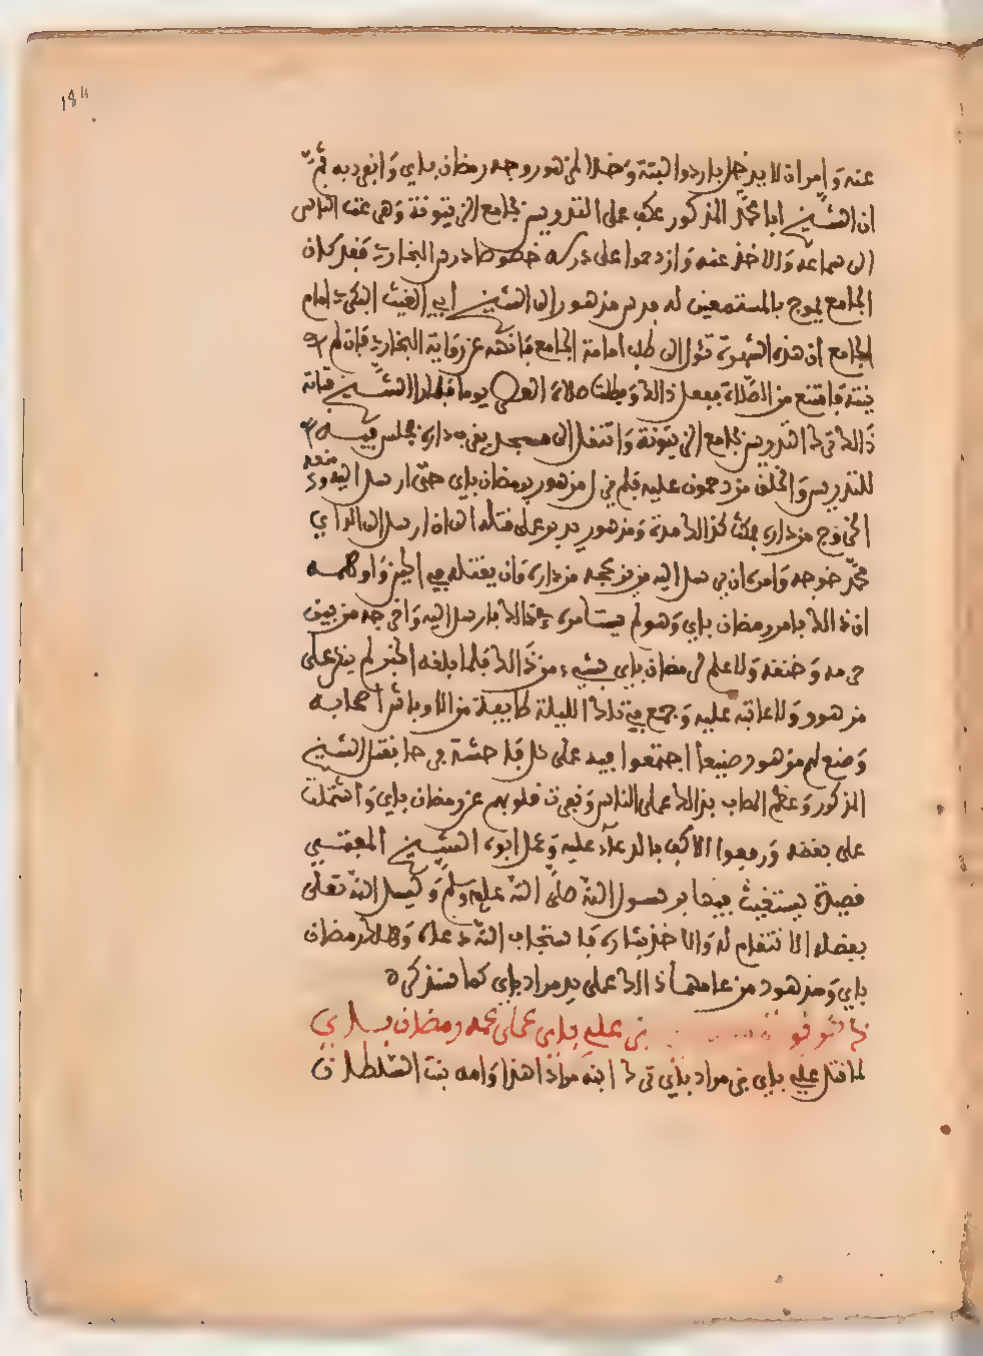 184
عنه وامر ان لا يدخل باردوا البتة وخلا لمزهود وجه رمضان باي وانفرد به ثم
ان الشيخ ابا محمد المذكور عكف على التدريس بجامع الزيتونة وهرعت الناس
الى سماعه والاخذ عنه وازدحموا على درسه خصوصا درس البخاري فقد كان
الجامع يموج بالمستمعين له فدس مزهود الى الشيخ ابي الغيث البكري امام
الجامع ان هذه الشهرة تؤل الى طلب امامة الجامع فانهه عن رواية البخاري فان لم
ينته فامتنع من الصلاة ففعل ذالك وبطلت صلاة العصر يوما فلما را الشيخ
ذالك ترك التدريس بجامع الزيتونة وانتقل الى مسجد بقرب داره فجلس فيه
للتدريس والخلق مزدحمون عليه فلم يزل مزهود برمضان باي حتى ارسل اليه ومنعه
الخروج من داره فمكث كذالك مدة ومزهود يدبر على قتله الى ان ارسل الى الداي
محمد خوجه وامره ان يرسل اليه من يزعجه من داره وان يقتله في الحين واوهمه
ان ذالك بامر رمضان باي وهو لم يستامره في ذالك فارسل اليه واخرجه من بين
حرمه وخنقه ولا علم لرمضان باي بشيء من ذالك فلما بلغه الخبر لم ينكر على
مزهود ولا عاتبه عليه وجمع في تلك الليلة طايفة من الاوباش اصحابه
وصنع لهم مزهود صنيعا اجتمعوا فيه على كل فاحشة فرحا بقتل الشيخ
المذكور وعظم المصاب بذالك على الناس ونفرت قلوبهم عن رمضان باي واشتملت
على بغضه ورفعوا الاكف بالدعاء عليه وعمل ابوه الشيخ المفتي
قصيدة يستغيث فيها برسول الله صلى الله عليه وسلم ويسل الله تعلى
بفضله الانتقام له والاخذ بثاره فاستجاب الله دعاه وهلك رمضان
باي ومزهود من عامهما ذالك على يد مراد باي كما سنذكره
ذكر ثورة بن علي باي على عمه رمضان باي
لما قتل علي باي بن مراد باي ترك ابنه مرادا هذا وامه بنت السلطان